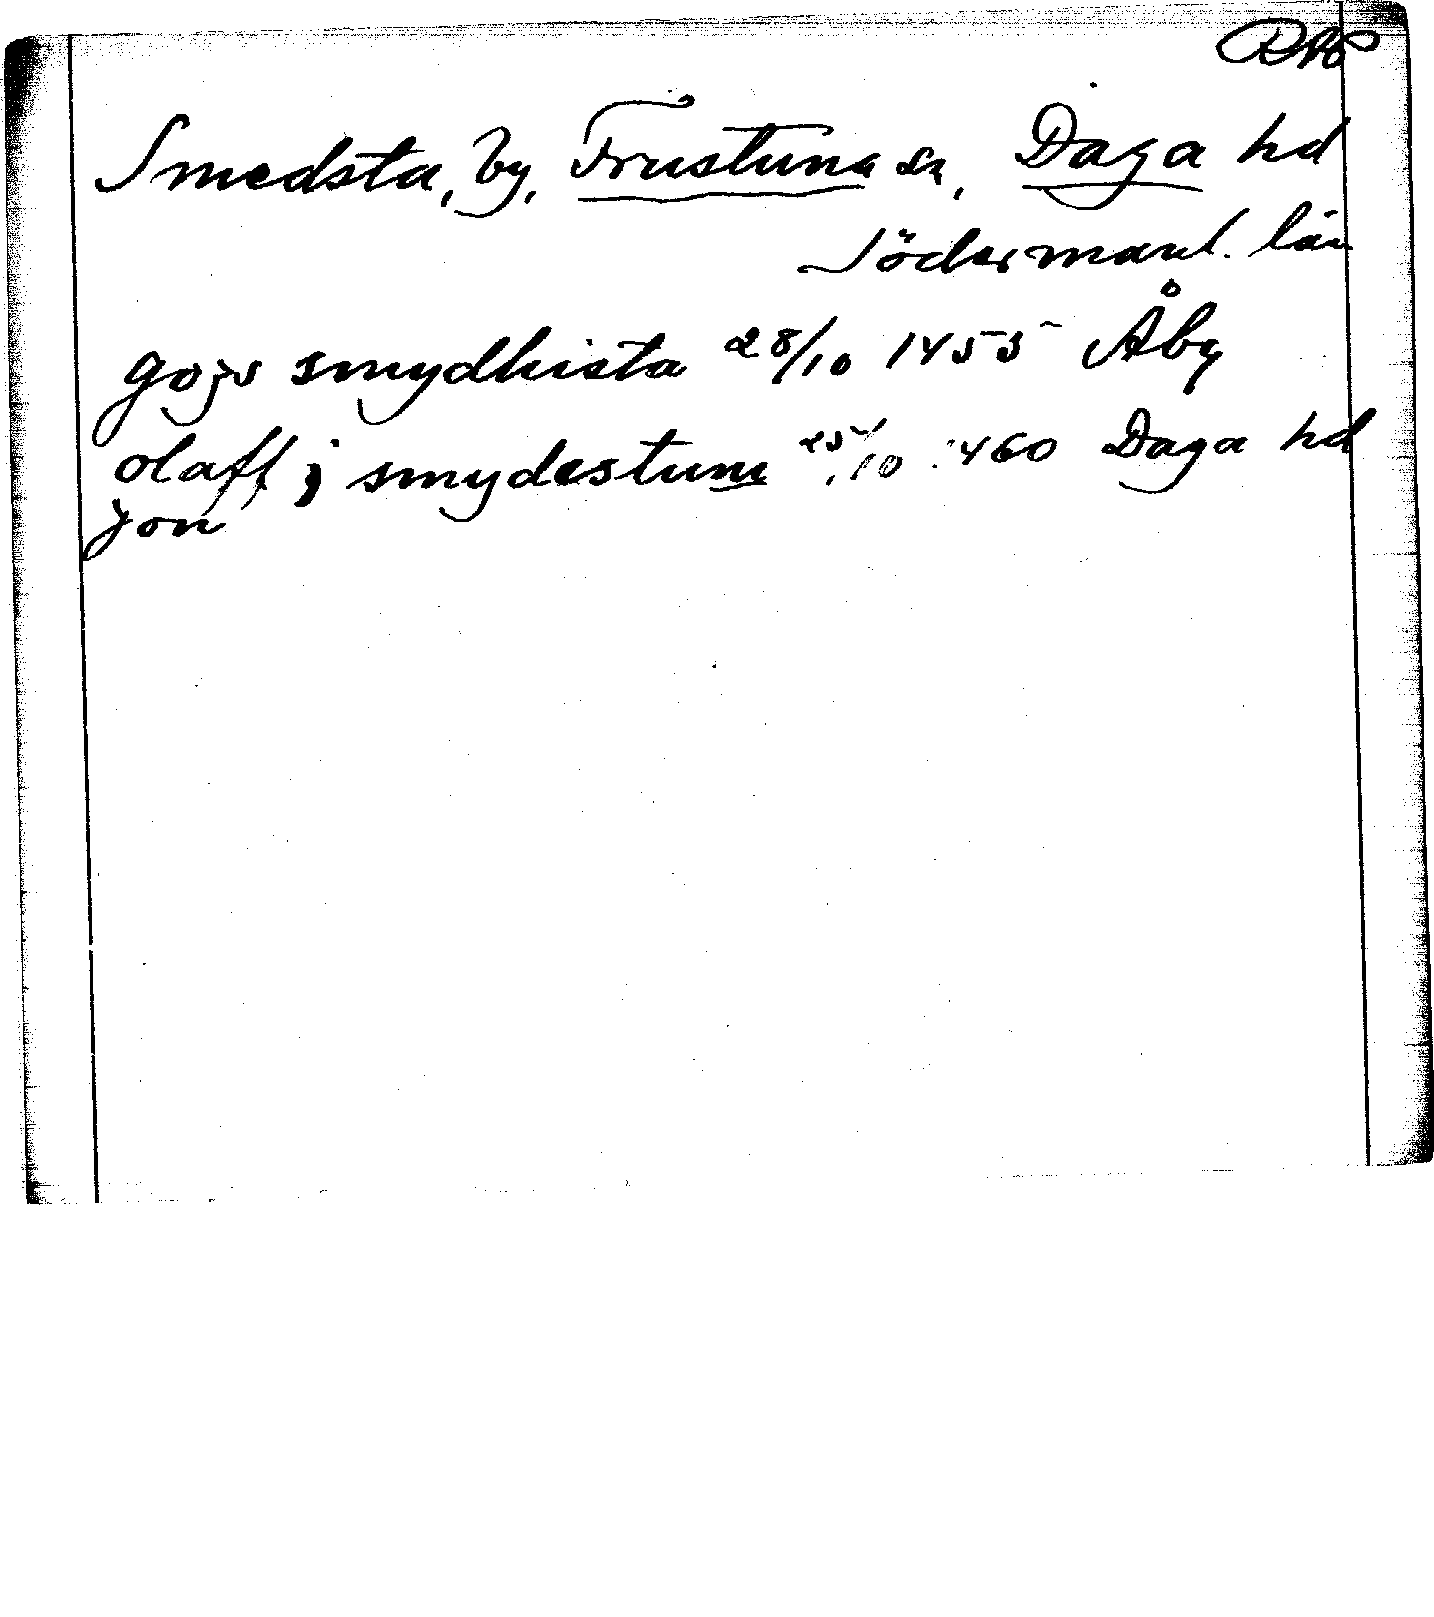 Smedsta, by, Frustuna sn, Daga hd
Södermanl. län
smydhista 28/10 1455 Åby
olaff j smydestum 25/10 1460 Daga hd
jon